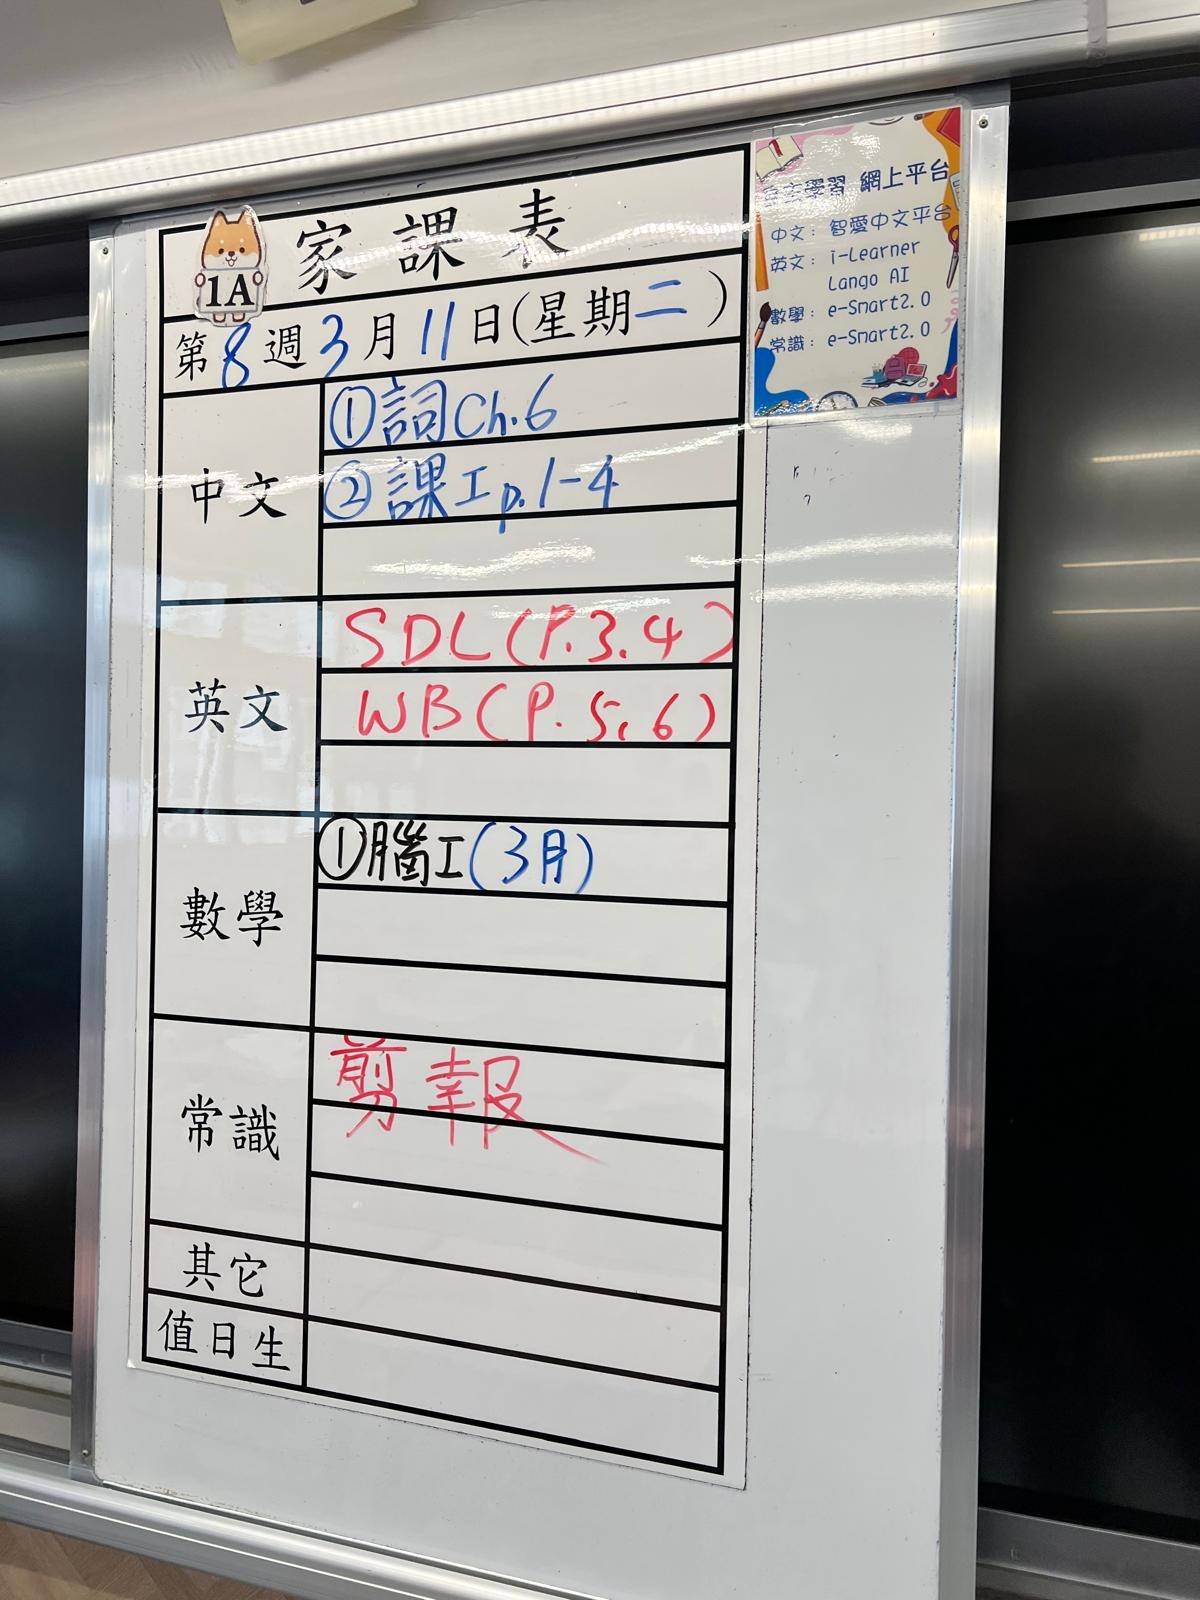 家課表
1A
第8週3月11日(星期二)
中文
①詞Ch.6
②課工p.1-4
英文
SDL(P.3.4)
WB(P.5,6)
數學
①腦工(3月)
常識
剪報
其它
值日生
自主學習 網上平台
中文: 智愛中文平台
英文: i-Learner
Lango AI
數學: e-Smart2.0
常識: e-Smart2.0